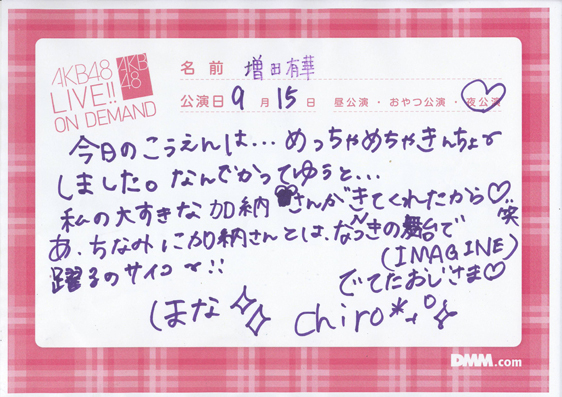 AKB48
LIVE!!
ON DEMAND
AKB
48
名前 増田有華
公演日 9月15日 昼公演・おやつ公演・夜公演
今日のこうえんは…めっちゃめちゃきんちょー
しました。なんでかってゆうと…
私の大すきな加納さんがきてくれたから♡
笑
あ、ちなみに加納さんとは、なつきの舞台で
(IMAGINE)
踊るのサイコー!!
でてたおじさま♡
ほな
chiro*
DMM.com